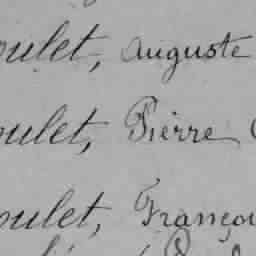 oulet, Auguste
oulet, Pierre
oulet, Françou